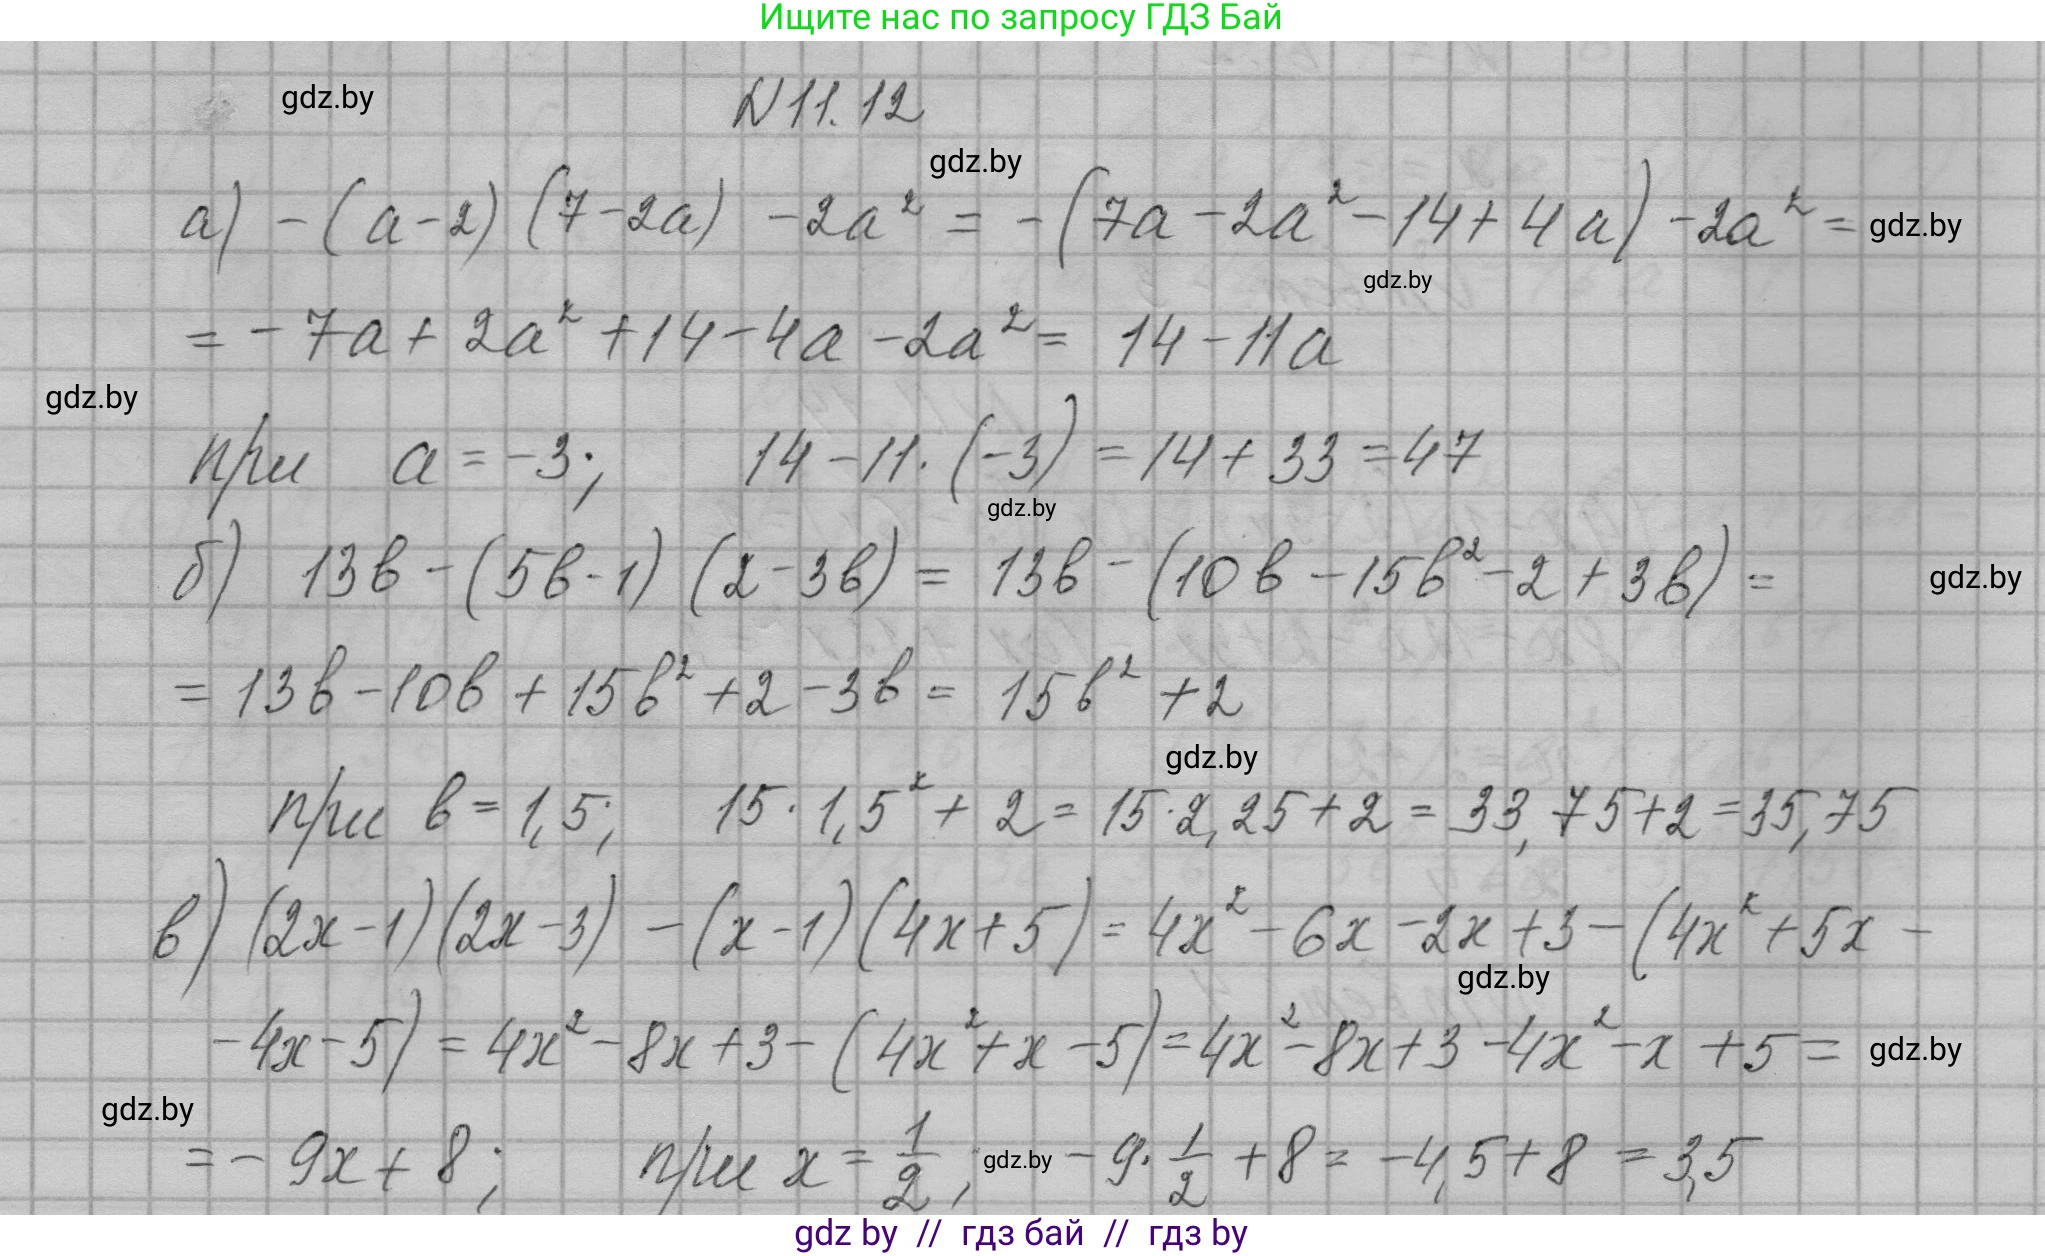 Ищите нас по запросу ГДЗ Бай
gdz.by
N 11.12
gdz.by
а) -(a-2)(7-2a) -2a² = -(7a-2a²-14+4a)-2a² =
gdz.by
gdz.by
= -7a+2a²+14-4a-2a² = 14-11a
gdz.by
при a=-3; 14-11·(-3)=14+33=47
gdz.by
б) 13в-(5в-1)(2-3в) = 13в-(10в-15в²-2+3в) =
gdz.by
= 13в-10в+15в²+2-3в = 15в²+2
gdz.by
при в=1,5; 15·1,5²+2=15·2,25+2=33,75+2=35,75
в) (2x-1)(2x-3)-(x-1)(4x+5)=4x²-6x-2x+3-(4x²+5x-
gdz.by
-4x-5)=4x²-8x+3-(4x²+x-5)=4x²-8x+3-4x²-x+5=
gdz.by
gdz.by
=-9x+8; при x=1/2; -9·1/2+8=-4,5+8=3,5
gdz.by
gdz by // гдз бай // гдз by